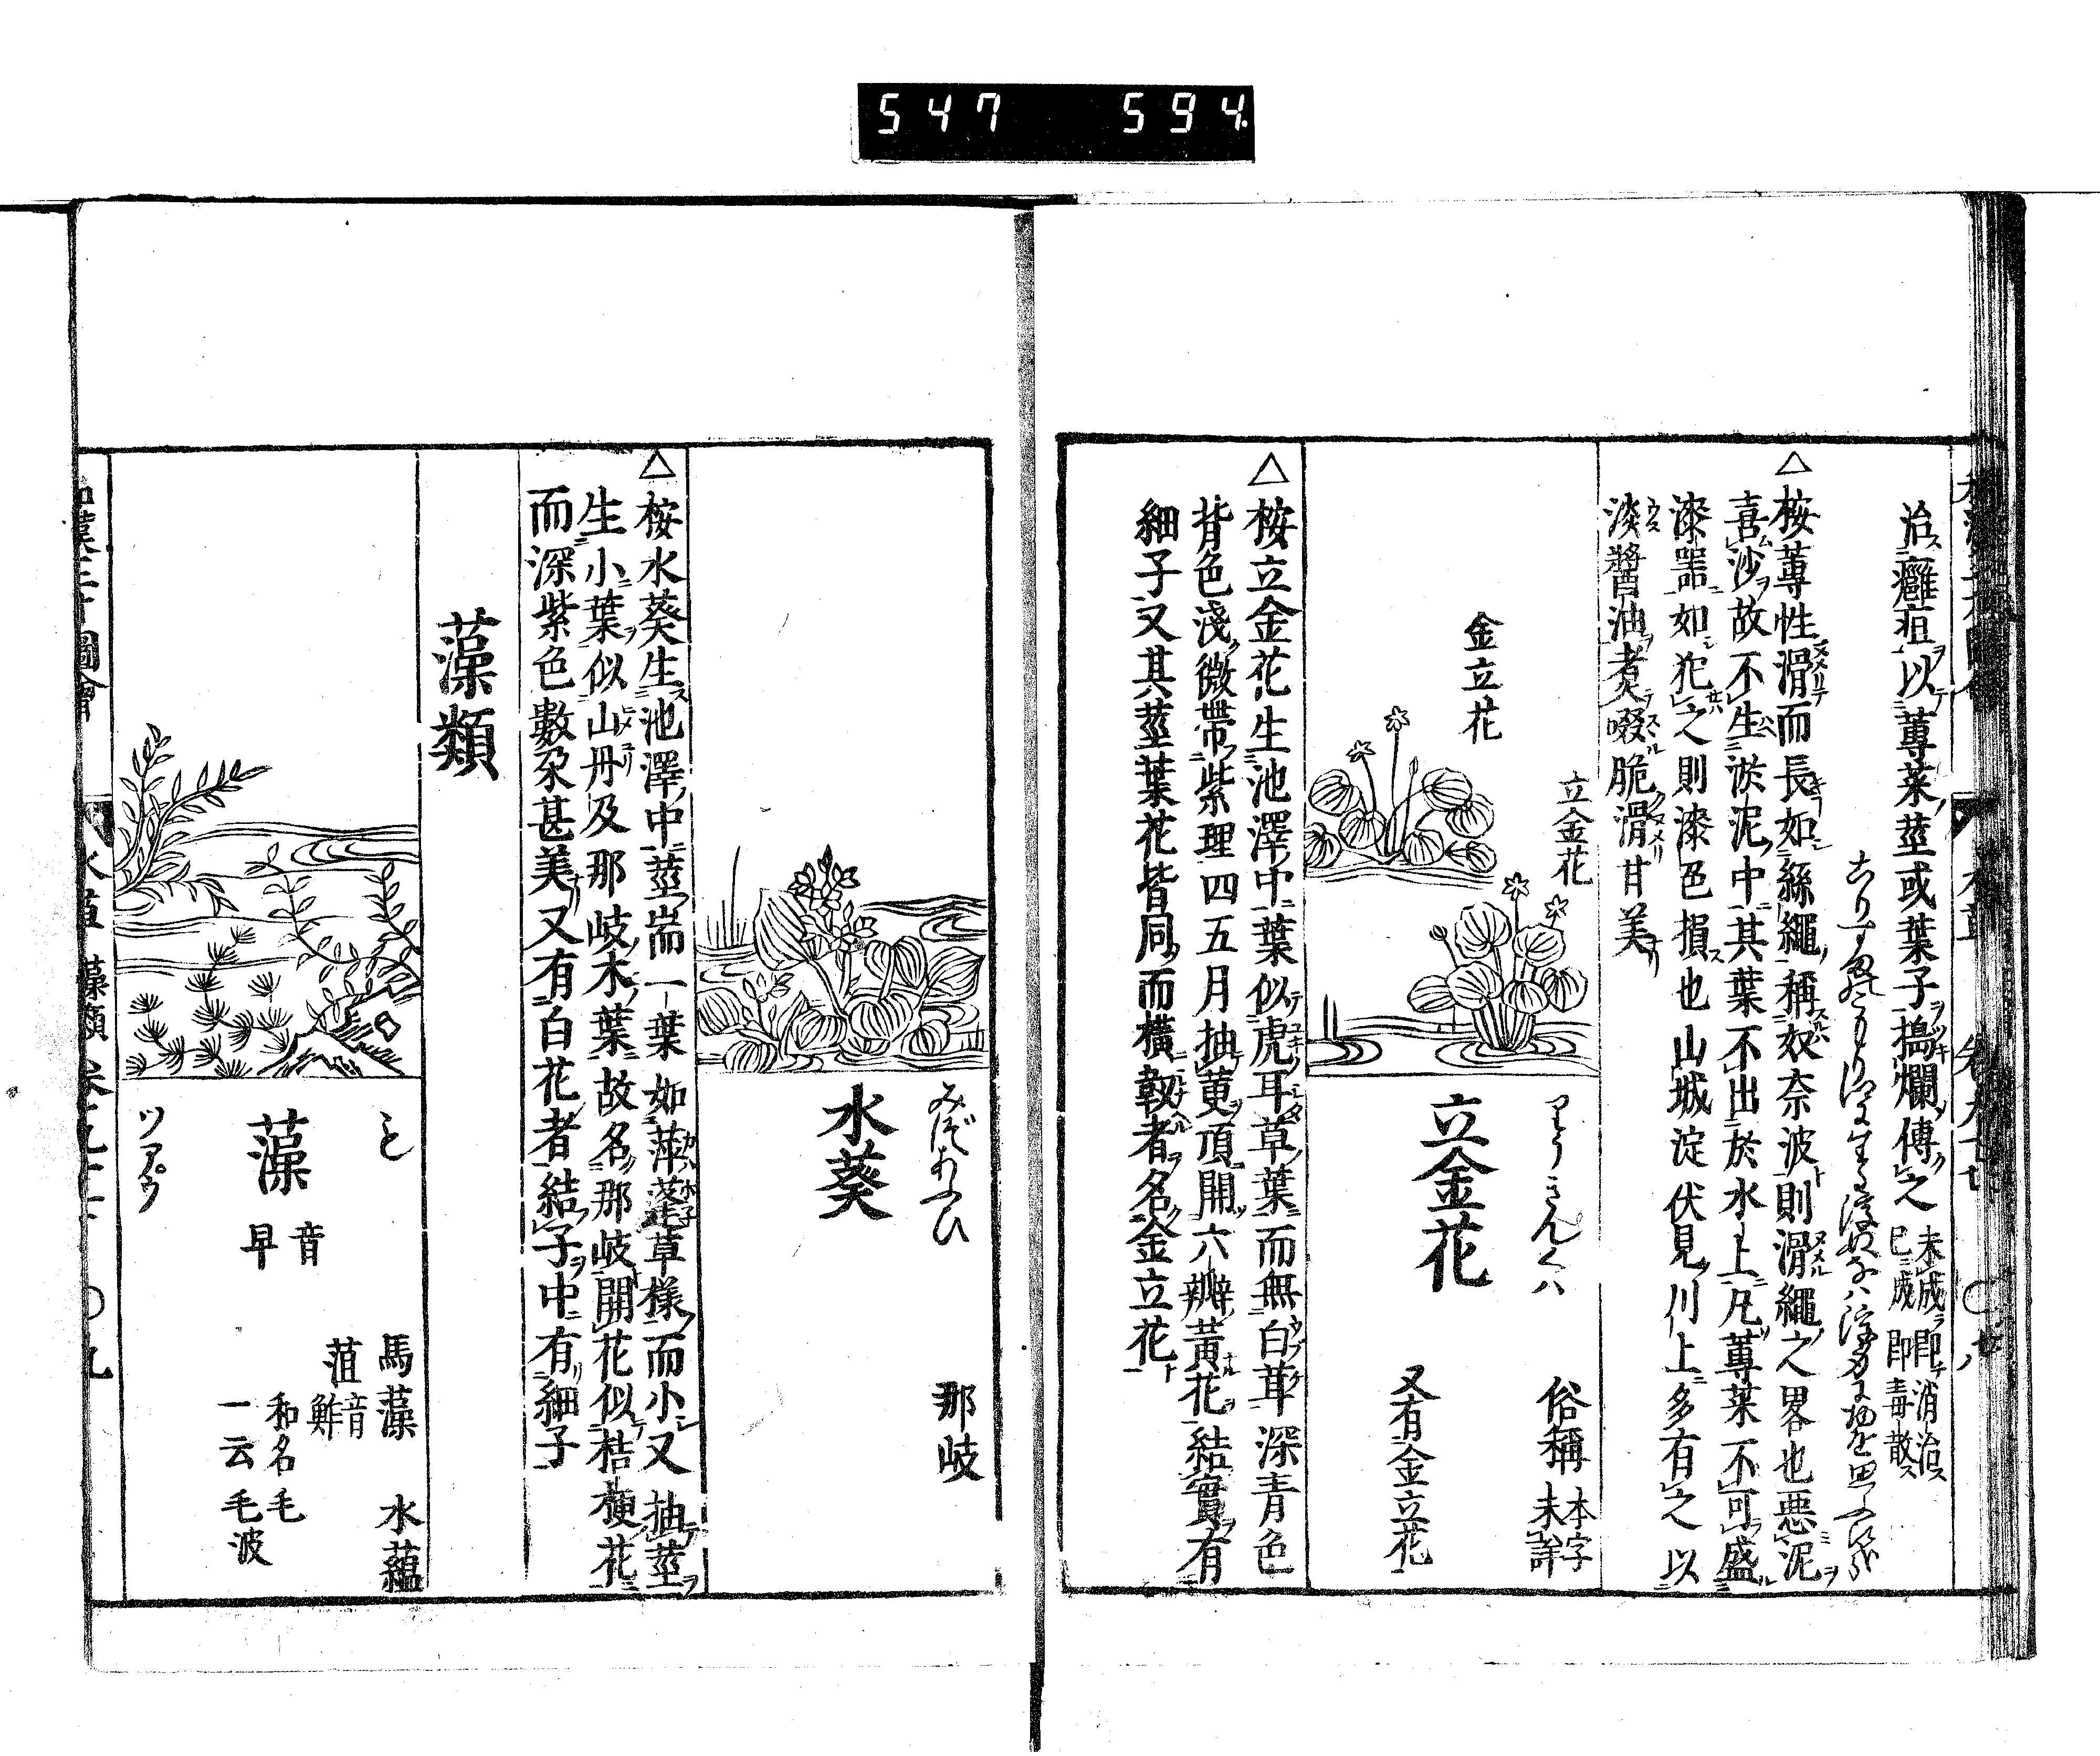 547 594
治癰疽以蓴菜莖或葉子搗爛傅之未成即消治已成即毒散
△桉蓴性滑而長如絲繩稱奴奈波則滑繩之畧也惡泥
喜沙故不生淤泥中其葉不出於水上凡蓴菜不可盛
漆噐如犯之則漆色損也山城淀伏見川上多有之以
淡醬油煑啜脆滑甘美
金立花
立金花
りうきんくハ
立金花
俗稱本字未詳
又有金立花
△桉立金花生池澤中葉似虎耳草葉而無白茸深青色
背色淺微帶紫理四五月抽莄頂開六瓣黃花結實有
細子又其莖葉花皆同而橫㪅者名金立花
みづあふひ
水葵
那岐
△桉水葵生池澤中莖耑一葉如萍蓬草樣而小又抽莖
生小葉似山丹及那岐木葉故名那岐開花似桔梗花
而深紫色數朶甚美又有白花者結子中有細子
藻類
も
藻
音早
ツアウ
馬藻 水蘊
菹音鮓
和名毛
一云毛波
和漢三才圖會 水草 藻類 卷九十七 〇九